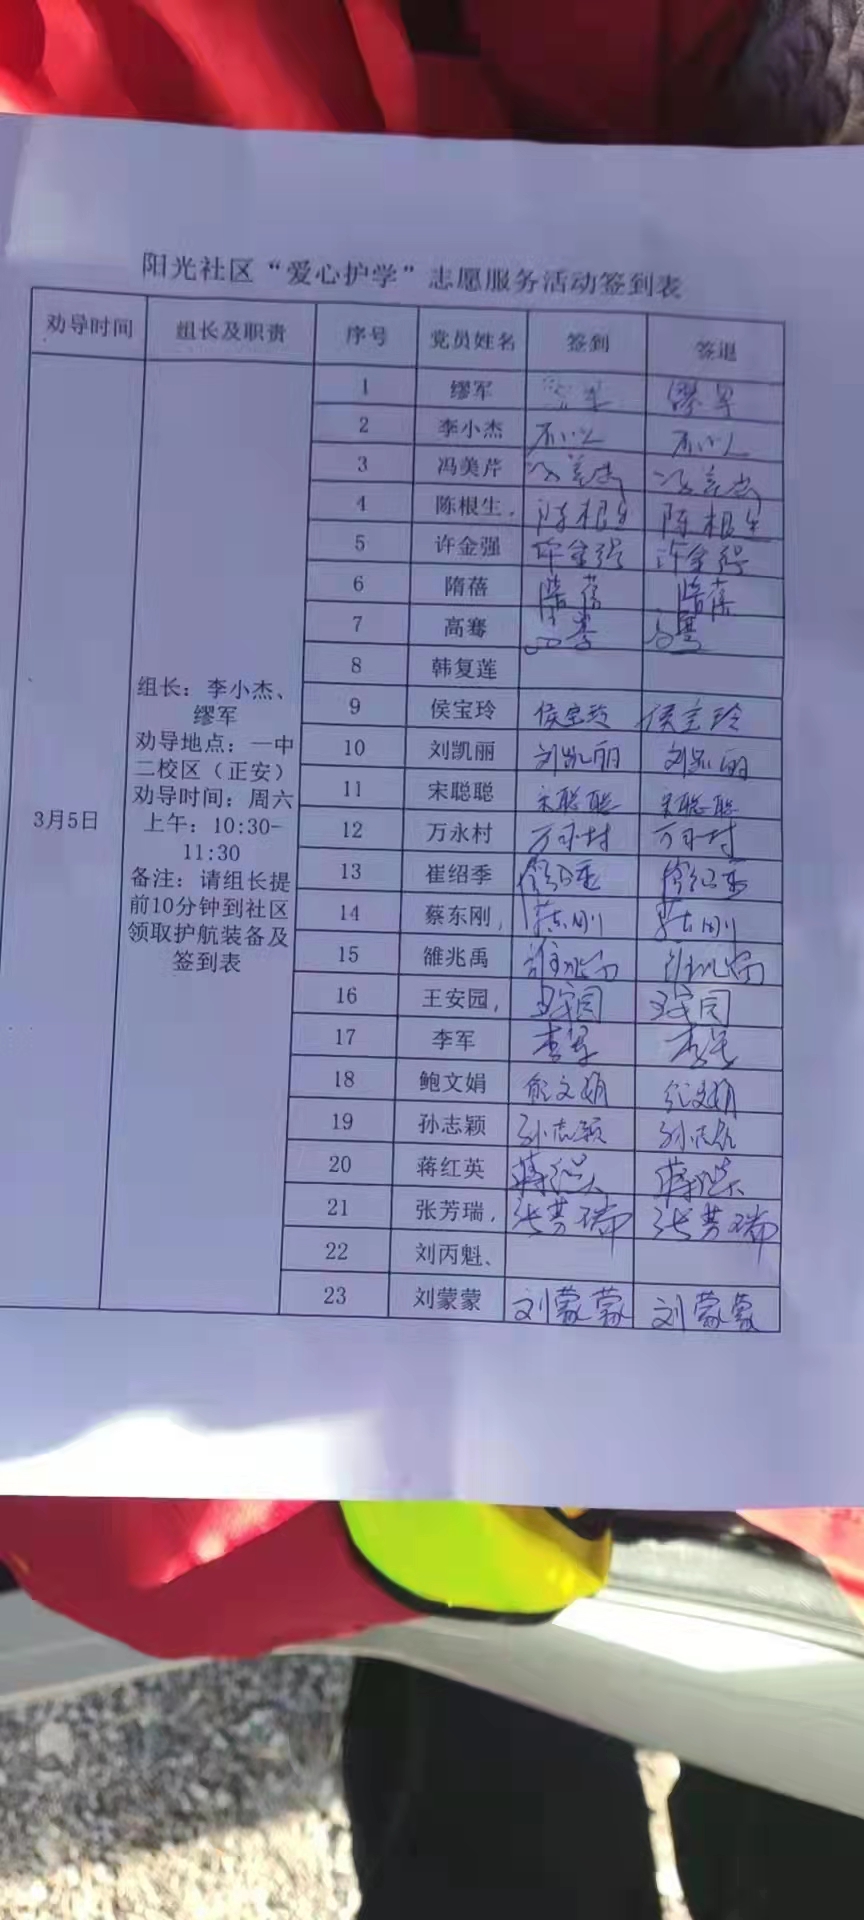 阳光社区“爱心护学”志愿服务活动签到表
劝导时间 组长及职责 序号 党员姓名 签到 签退
3月5日
组长：李小杰、
缪军
劝导地点：一中
二校区（正安）
劝导时间：周六
上午：10:30-
11:30
备注：请组长提
前10分钟到社区
领取护航装备及
签到表
1 缪军 缪军
2 李小杰
3 冯美芹 冯美芹 冯美芹
4 陈根生， 陈根生 陈根生
5 许金强 许金强 许金强
6 隋蓓 隋蓓 隋蓓
7 高骞 高骞 高骞
8 韩复莲
9 侯宝玲 侯宝玲 侯宝玲
10 刘凯丽 刘凯丽 刘凯丽
11 宋聪聪 宋聪聪 宋聪聪
12 万永村 万永村 万永村
13 崔绍季
14 蔡东刚， 蔡东刚 蔡东刚
15 雒兆禹 雒兆禹 雒兆禹
16 王安园， 王安园 王安园
17 李军 李军 李军
18 鲍文娟 鲍文娟 鲍文娟
19 孙志颖 孙志颖 孙志颖
20 蒋红英 蒋红英 蒋红英
21 张芳瑞， 张芳瑞 张芳瑞
22 刘丙魁、
23 刘蒙蒙 刘蒙蒙 刘蒙蒙